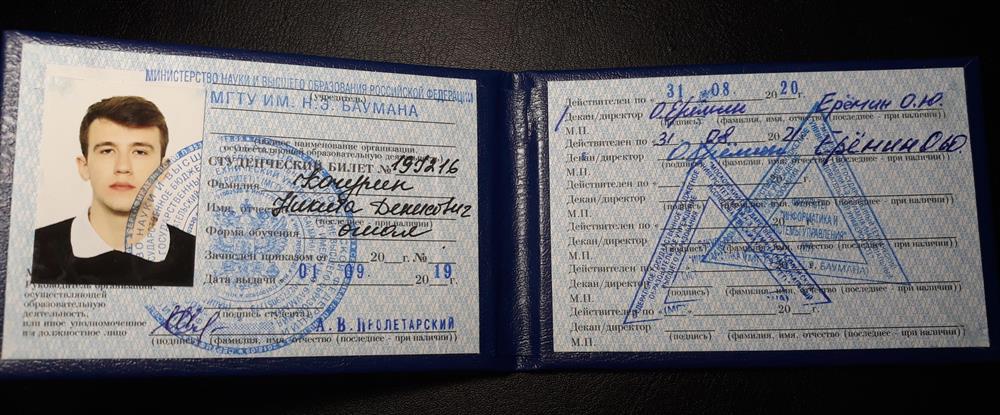 МИНИСТЕРСТВО НАУКИ И ВЫСШЕГО ОБРАЗОВАНИЯ РОССИЙСКОЙ ФЕДЕРАЦИИ
(учредитель)
МГТУ ИМ. Н.Э. БАУМАНА
(полное наименование организации,
осуществляющей образовательную деятельность)
СТУДЕНЧЕСКИЙ БИЛЕТ № 19У216
Фамилия
Имя, отчество Никита Денисович
(последнее - при наличии)
Форма обучения очная
Зачислен приказом от 20 г. №
Дата выдачи 01 09 2019
(подпись студента)
руководитель организации,
осуществляющей
образовательную
деятельность,
или иное уполномоченное
им должностное лицо
А.В.ПРОЛЕТАРСКИЙ
(подпись) (фамилия, имя, отчество (последнее - при наличии)
Действителен по «31 08 2020г.
Декан/директор Ерёмин О.Ю.
М.П. (подпись) (фамилия, имя, отчество (последнее - при наличии))
Действителен по «31 08 2021
Декан/директор Ерёмин О.Ю.
М.П. (подпись) (фамилия, имя, отчество (последнее - при наличии))
Действителен по «
Декан/директор
М.П. (подпись) (фамилия, имя, отчество (последнее - при наличии))
Действителен по «
Декан/директор
М.П. (подпись) (фамилия, имя, отчество (последнее - при наличии))
Действителен по «
Декан/директор
М.П. (подпись) (фамилия, имя, отчество (последнее - при наличии))
Действителен по « 20 г.
Декан/директор
М.П. (подпись) (фамилия, имя, отчество (последнее - при наличии))
ИНФОРМАТИКА И
УПРАВЛЕНИЯ
БАУМАНА